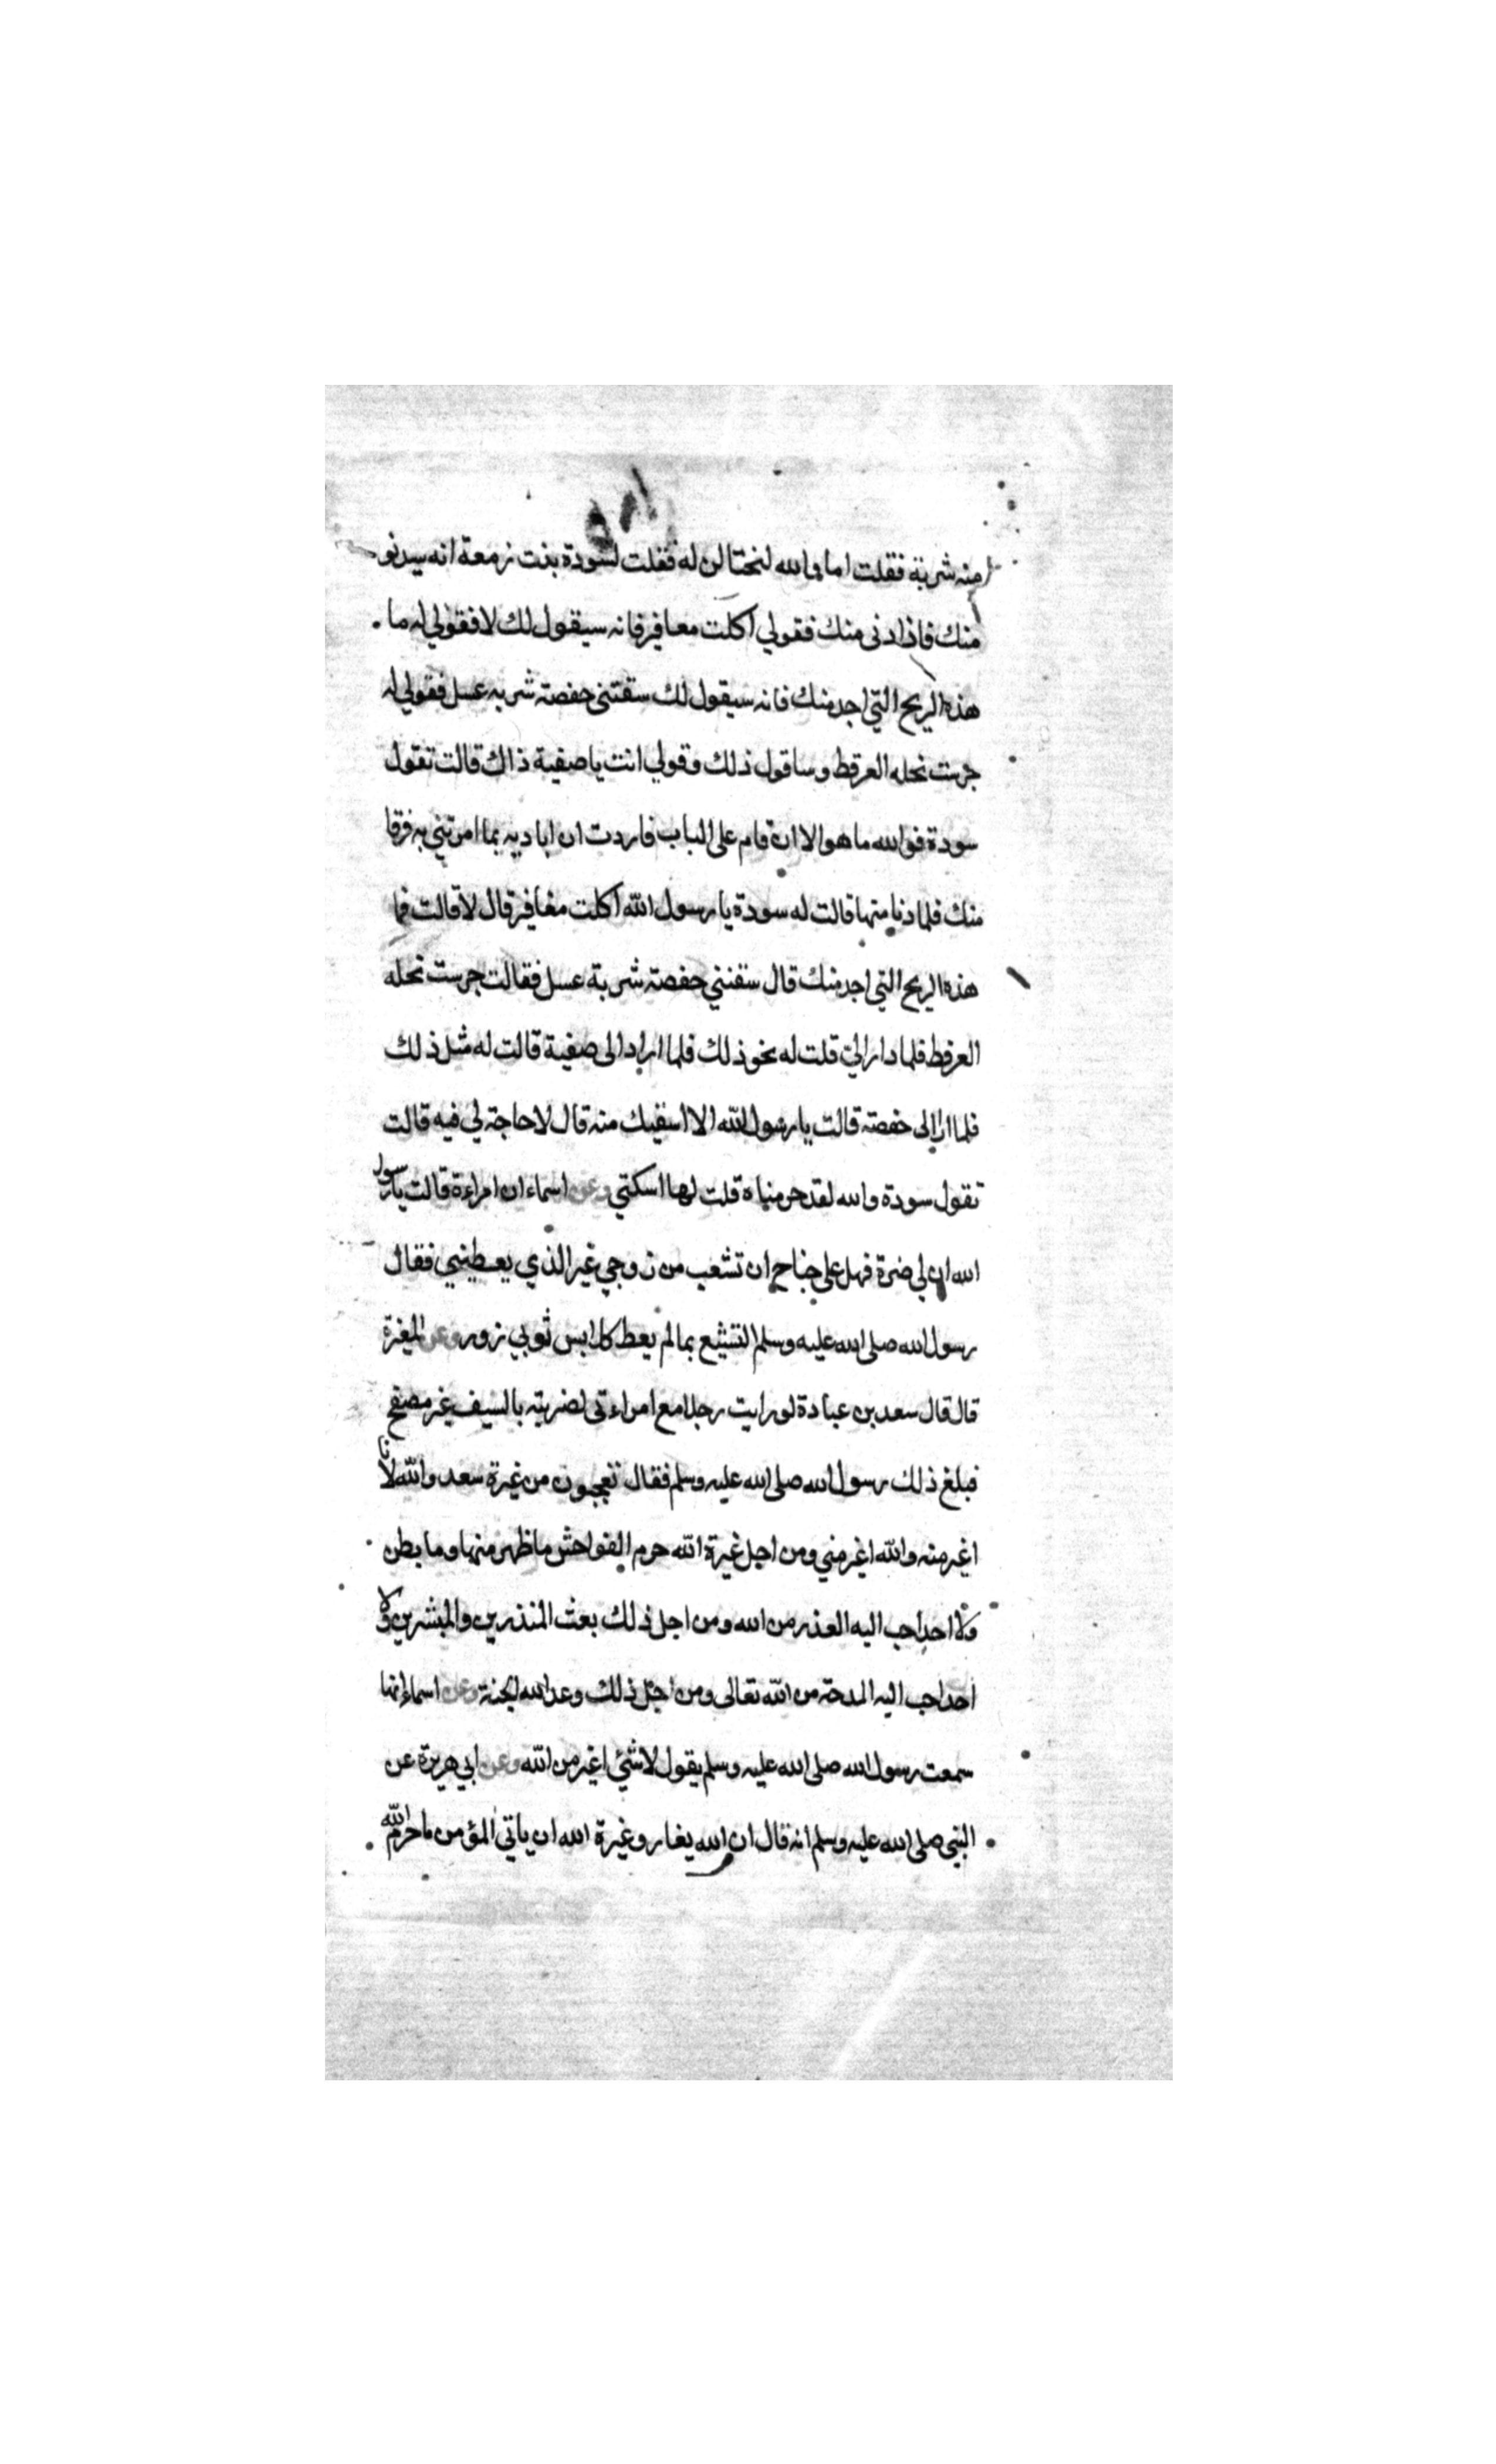 منه شربة فقلت اما والله لنحتالن له فقلت لسودة بنت زمعة انه سيدنو
منك فاذا دنى منك فقولي اكلت معافير فانه سيقول لك لا فقولي له ما
هذه الريح التي اجد منك فانه سيقول لك سقتنى حفصة شربه عسل فقولي له
جرست نحله العرفط وساقول ذلك وقولي انت يا صفية ذاك قالت تقول
سودة فوالله ما هو الا ان قام على الباب فاردت ان اباديه بما امرتني به فرقا
منك فلما دنا منها قالت له سودة يا رسول الله اكلت مغافير قال لا قالت فما
هذه الريح التي اجد منك قال سقتني حفصة شربة عسل فقالت جرست نحله
العرفط فلما دار الي قلت له نحو ذلك فلما اراد الى صفية قالت له مثل ذلك
فلما الى حفصة قالت يا رسول الله الا اسقيك منه قال لا حاجة لي فيه قالت
تقول سودة والله لقد حرمناه قلت لها اسكتي وعن اسماء ان امراءة قالت يا رسول
الله ان لي ضرة فهل علي جناح ان تشعب من زوجي غير الذي يعطيني فقال
رسول الله صلى الله عليه وسلم المتشبع بما لم يعط كلابس ثوبي زور وعن المغيرة
قال قال سعد بن عبادة لو رايت رجلا مع امراءتى لضربته بالسيف غير مصفح
فبلغ ذلك رسول الله صلى الله عليه وسلم فقال تعجبون من غيرة سعد والله لانا
اغير منه والله اغير مني ومن اجل غيرة الله حرم الفواحش ما ظهر منها وما بطن
ولا احد احب اليه العذر من الله ومن اجل ذلك بعث المنذرين والمبشرين ولا
احد احب اليه المدحة من الله تعالى ومن اجل ذلك وعد الله الجنة وعن اسماء انها
سمعت رسول الله صلى الله عليه وسلم يقول لا شئ اغير من الله وعن ابي هريرة عن
النبي صلى الله عليه وسلم انه قال ان الله يغار وغيرة الله ان ياتي المؤمن ما حرم الله